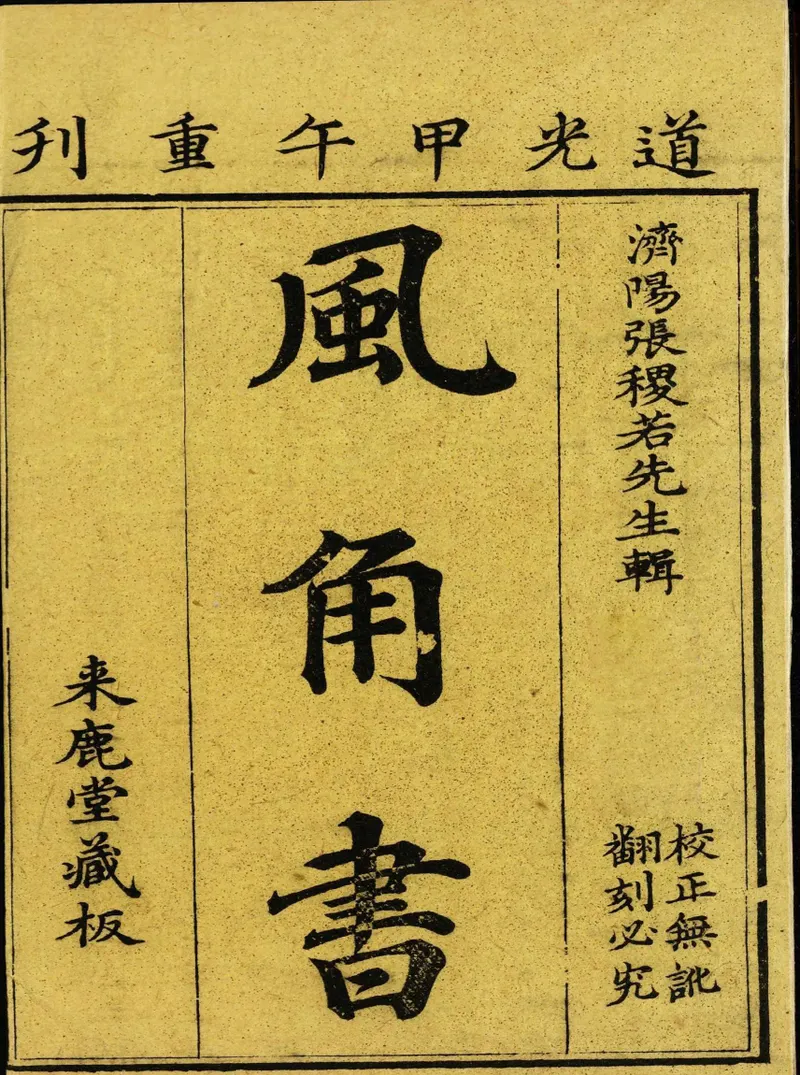 道光甲午重刋
濟陽張稷若先生輯
校正無訛
翻刻必究
風角書
来鹿堂藏板